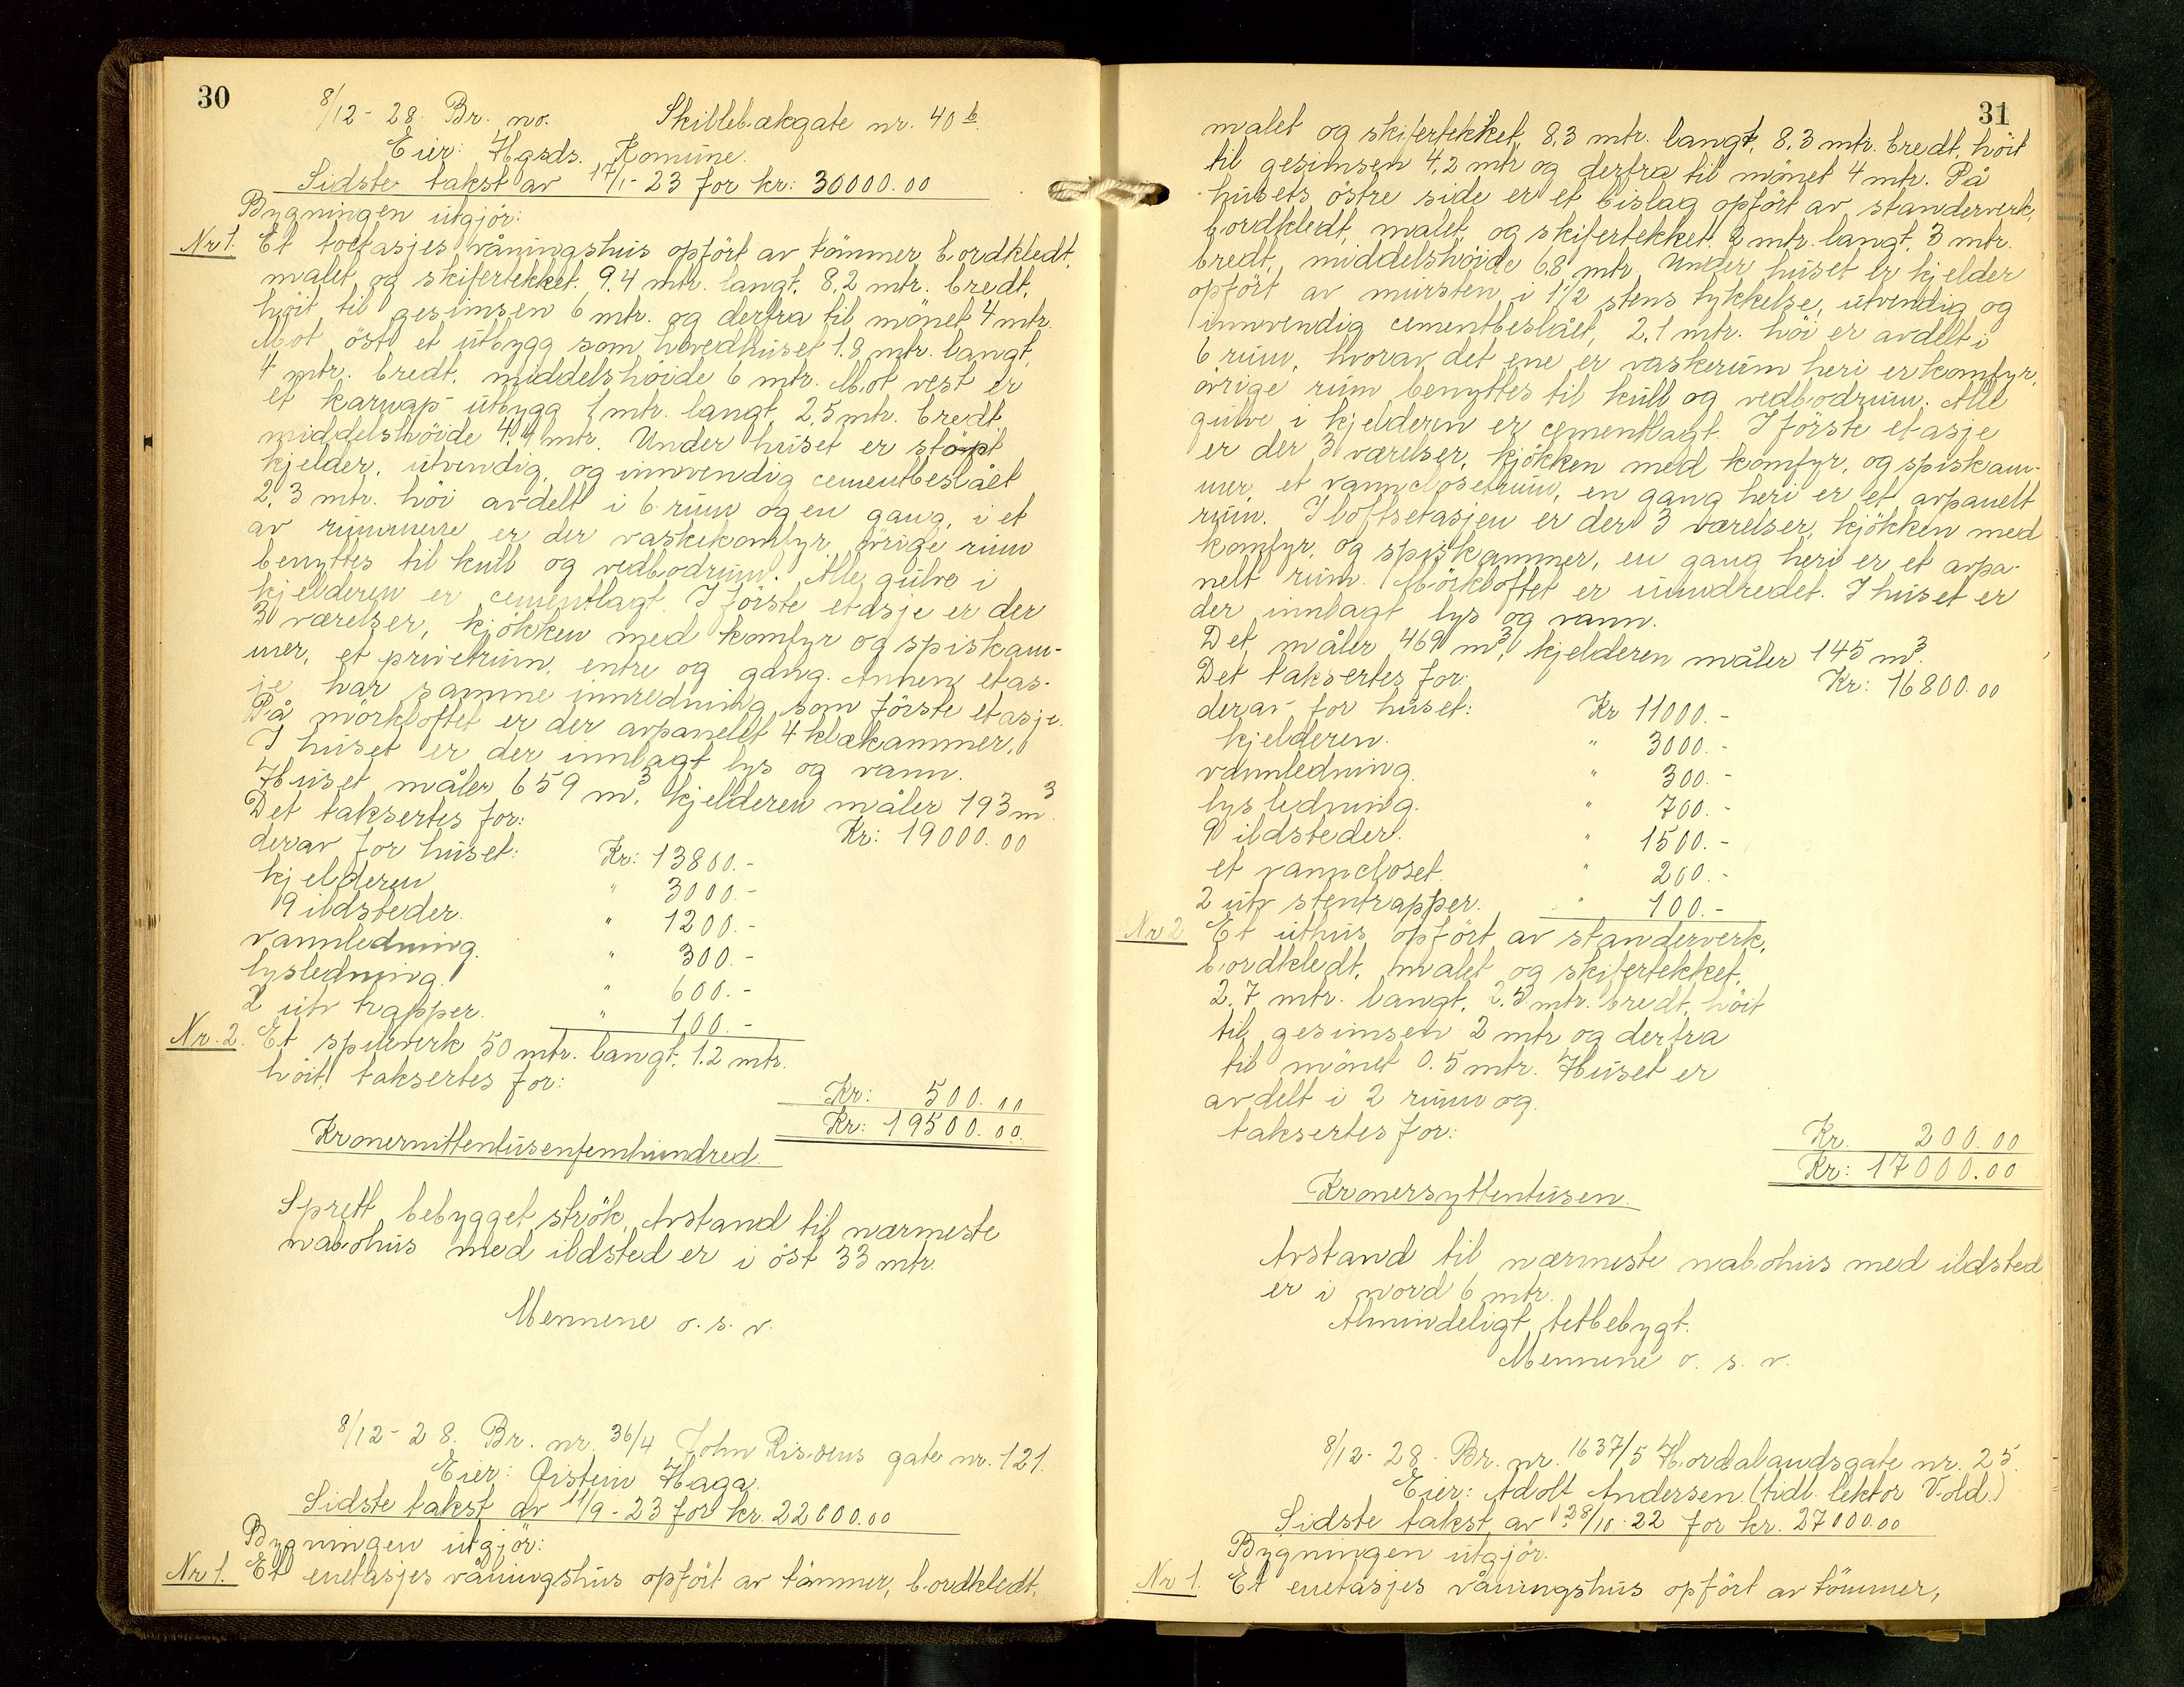 30
8/12 - 28. Br. no. Skillebækgate nr. 40 b.
Eier: Hgsds. Komune.
Sidste takst av 17/1 - 23 for kr: 30000.00
Bygningen utgjör:
Nr 1. Et toetasjes våningshus opfört av tömmer, bordkledt,
malet og skifertekket. 9.4 mtr. langt. 8.2 mtr. bredt,
höit til gesimsen 6 mtr. og derfra til mönet 4 mtr.
Mot öst et utbygg som hovedhuset 1.8 mtr. langt,
4 mtr. bredt, middelshöide 6 mtr. Mot vest er
et karnap-utbygg 1 mtr. langt, 2,5 mtr. bredt,
middelshöide 4.4 mtr. Under huset er stöpt
kjelder, utvendig og innvendig cementbeslået
2,3 mtr. höi avdelt i 6 rum og en gang, i et
av rummene er der vaskekomfyr övrige rum
benyttes til kull og vedbodrum. Alle gulve i
kjelderen er cementlagt. I förste etasje er der
3 værelser, kjökken med komfyr og spiskam-
mer, et privetrum, entre og gang. Annen etas-
je har samme innredning som förste etasje.
På mörkloftet er der avpanellt 4 klækammer,
I huset er der innlagt lys og vann.
Huset måler 659 m³, kjelderen måler 193 m³.
Det taksertes for: Kr: 19000.00
derav for huset: Kr: 13800.-
kjelderen " 3000.-
9 ildsteder. " 1200.-
vannledning. " 300.-
lysledning. " 600.-
2 utv trapper. " 100.-
Nr. 2. Et spilverk 50 mtr. langt, 1.2 mtr.
höit, taksertes for: Kr: 500.00
Kr: 19500.00
Kronernittentusenfemhundred.
Sprett bebygget strök, Avstand til nærmeste
nabohus med ildsted er i öst 33 mtr.
Mennene o. s. v.
8/12 - 28. Br. nr. 36/4 John Risöens gate nr. 121.
Eier: Öistein Haga.
Sidste takst av 11/9 - 23 for kr. 22000.00
Bygningen utgjör:
Nr 1. Et enetasjes våningshus opfört av tömmer, bordkledt,
31
malet og skifertekket, 8.3 mtr. langt, 8.3 mtr. bredt, höit
til gesimsen 4,2 mtr og derfra til mönet 4 mtr. På
husets östre side er et bislag opfört av standerverk,
bordkledt, malet, og skifertekket. 2 mtr. langt, 3 mtr.
bredt, middelshöide 6,8 mtr. Under huset er kjelder
opfört av mursten i 1 1/2 stens tykkelse, utvendig og
innvendig cementbeslået, 2,1 mtr. höi er avdelt i
6 rum, hvorav det ene er vaskerum heri er komfyr,
övrige rum benyttes til kull og vedbodrum. Alle
gulve i kjelderen er cementlagt. I förste etasje
er der 3 værelser, kjökken med komfyr, og spiskam-
mer, et vannclosetrum, en gang heri er et avpanelt
rum. I loftsetasjen er der 3 værelser, kjökken med
komfyr, og spiskammer, en gang heri er et avpa-
nelt rum. Mörkloftet er innredet. I huset er
der innlagt lys og vann.
Det måler 469 m³, kjelderen måler 145 m³.
Det taksertes for: Kr: 16800.00
derav for huset: Kr 11000.-
kjelderen. " 3000.-
vannledning. " 300.-
lysledning. " 700.-
9 ildsteder. " 1500.-
et vanncloset. " 200.-
2 utv stentrapper. " 100.-
Nr 2 Et uthus opfört av standerverk,
bordkledt, malet og skifertekket,
2,7 mtr. langt, 2.5 mtr. bredt, höit
til gesimsen 2 mtr og derfra
til mönet 0.5 mtr. Huset er
avdelt i 2 rum og
taksertes for: Kr. 200.00
Kr: 17000.00
Kronersyttentusen.
Avstand til nærmeste nabohus med ildsted
er i nord 6 mtr.
Almindeligt tetbebygt.
Mennene o. s. v.
8/12 - 28 - Br. nr. 1637/5 Hordalandsgate nr. 25.
Eier: Adolf Andersen (tidl. lektor Vold.)
Sidste takst av 28/10 - 22 for kr. 27000.00
Bygningen utgjör.
Nr 1. Et enetasjes våningshus opfört av tömmer,